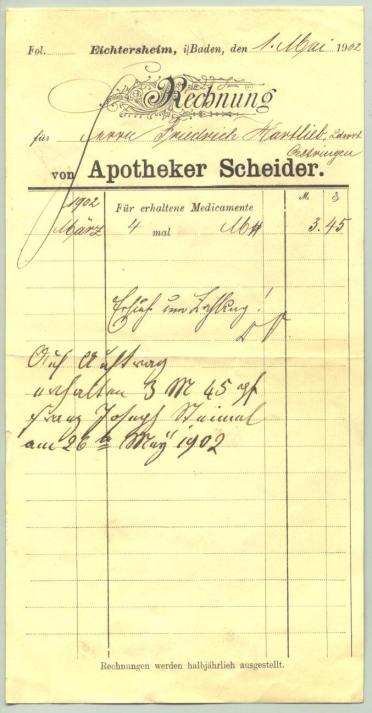 Fol. Eichtersheim, i/Baden, den 1. Mai 1902
Rechnung
für Herrn Friedrich Hartlieb,
Oestringen
von Apotheker Scheider.
1902 M. ₰
Für erhaltene Medicamente
März 4 mal M 3.45
Zahlung!
Auf Auftrag
erhalten 3 M 45 pf
Franz Joseph Steimel
am 26 May 1902
Rechnungen werden halbjährlich ausgestellt.